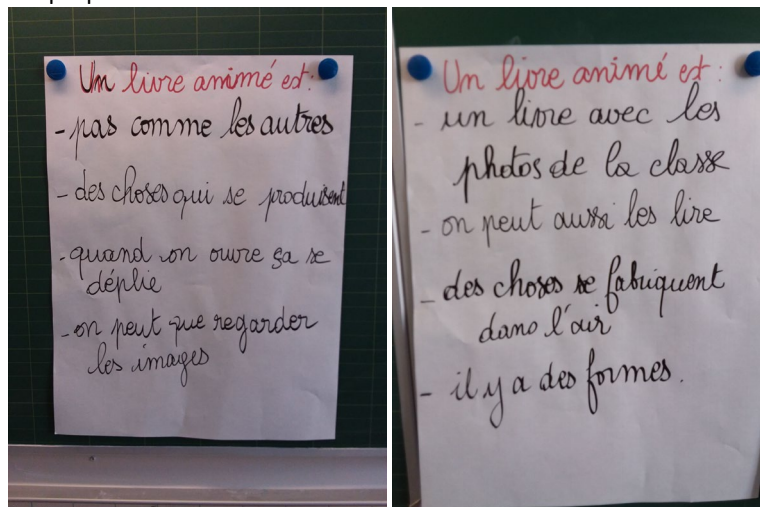 Un livre animé est:
- pas comme les autres
- des choses qui se produisent
- quand on ouvre ça se
déplie
- on peut que regarder
les images
Un livre animé est :
- un livre avec les
photos de la classe
- on peut aussi les lire
- des choses se fabriquent
dans l'air
- il y a des formes.